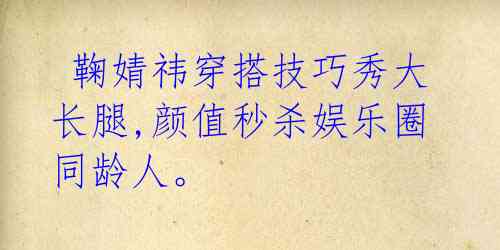 鞠婧祎穿搭技巧秀大
长腿,颜值秒杀娱乐圈
同龄人。